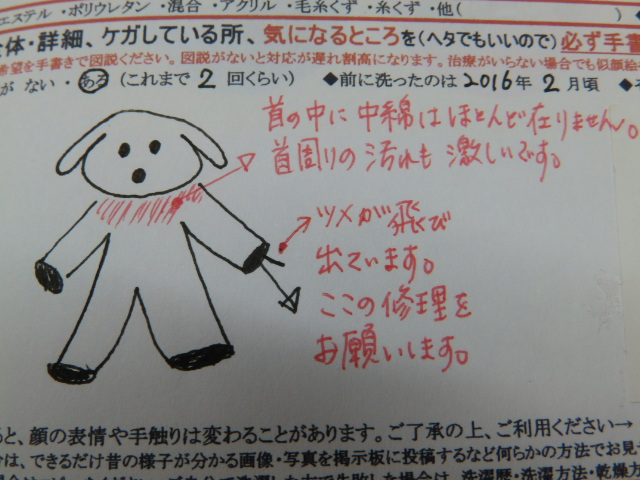 エステル ・ポリウレタン ・混合 ・アクリル ・毛糸くず ・糸くず ・他( )
体・詳細、ケガしている所、気になるところを(ヘタでもいいので)必ず手書
希望を手書きで図説ください。図説がないと対応が遅れ割高になります。治療がいらない場合でも似顔絵
がない・ある (これまで 2 回くらい) ◆前に洗ったのは 2016 年 2 月頃 ◆
首の中に中綿はほとんど在りません。
首周りの汚れも激しいです。
ツメが飛び
出ています。
ここの修理を
お願いします。
ると、顔の表情や手触りは変わることがあります。ご了承の上、ご利用ください→
は、できるだけ昔の様子が分かる画像・写真を掲示板に投稿するなど何らかの方法でお見
場合は、洗濯歴・洗濯方法・乾燥方